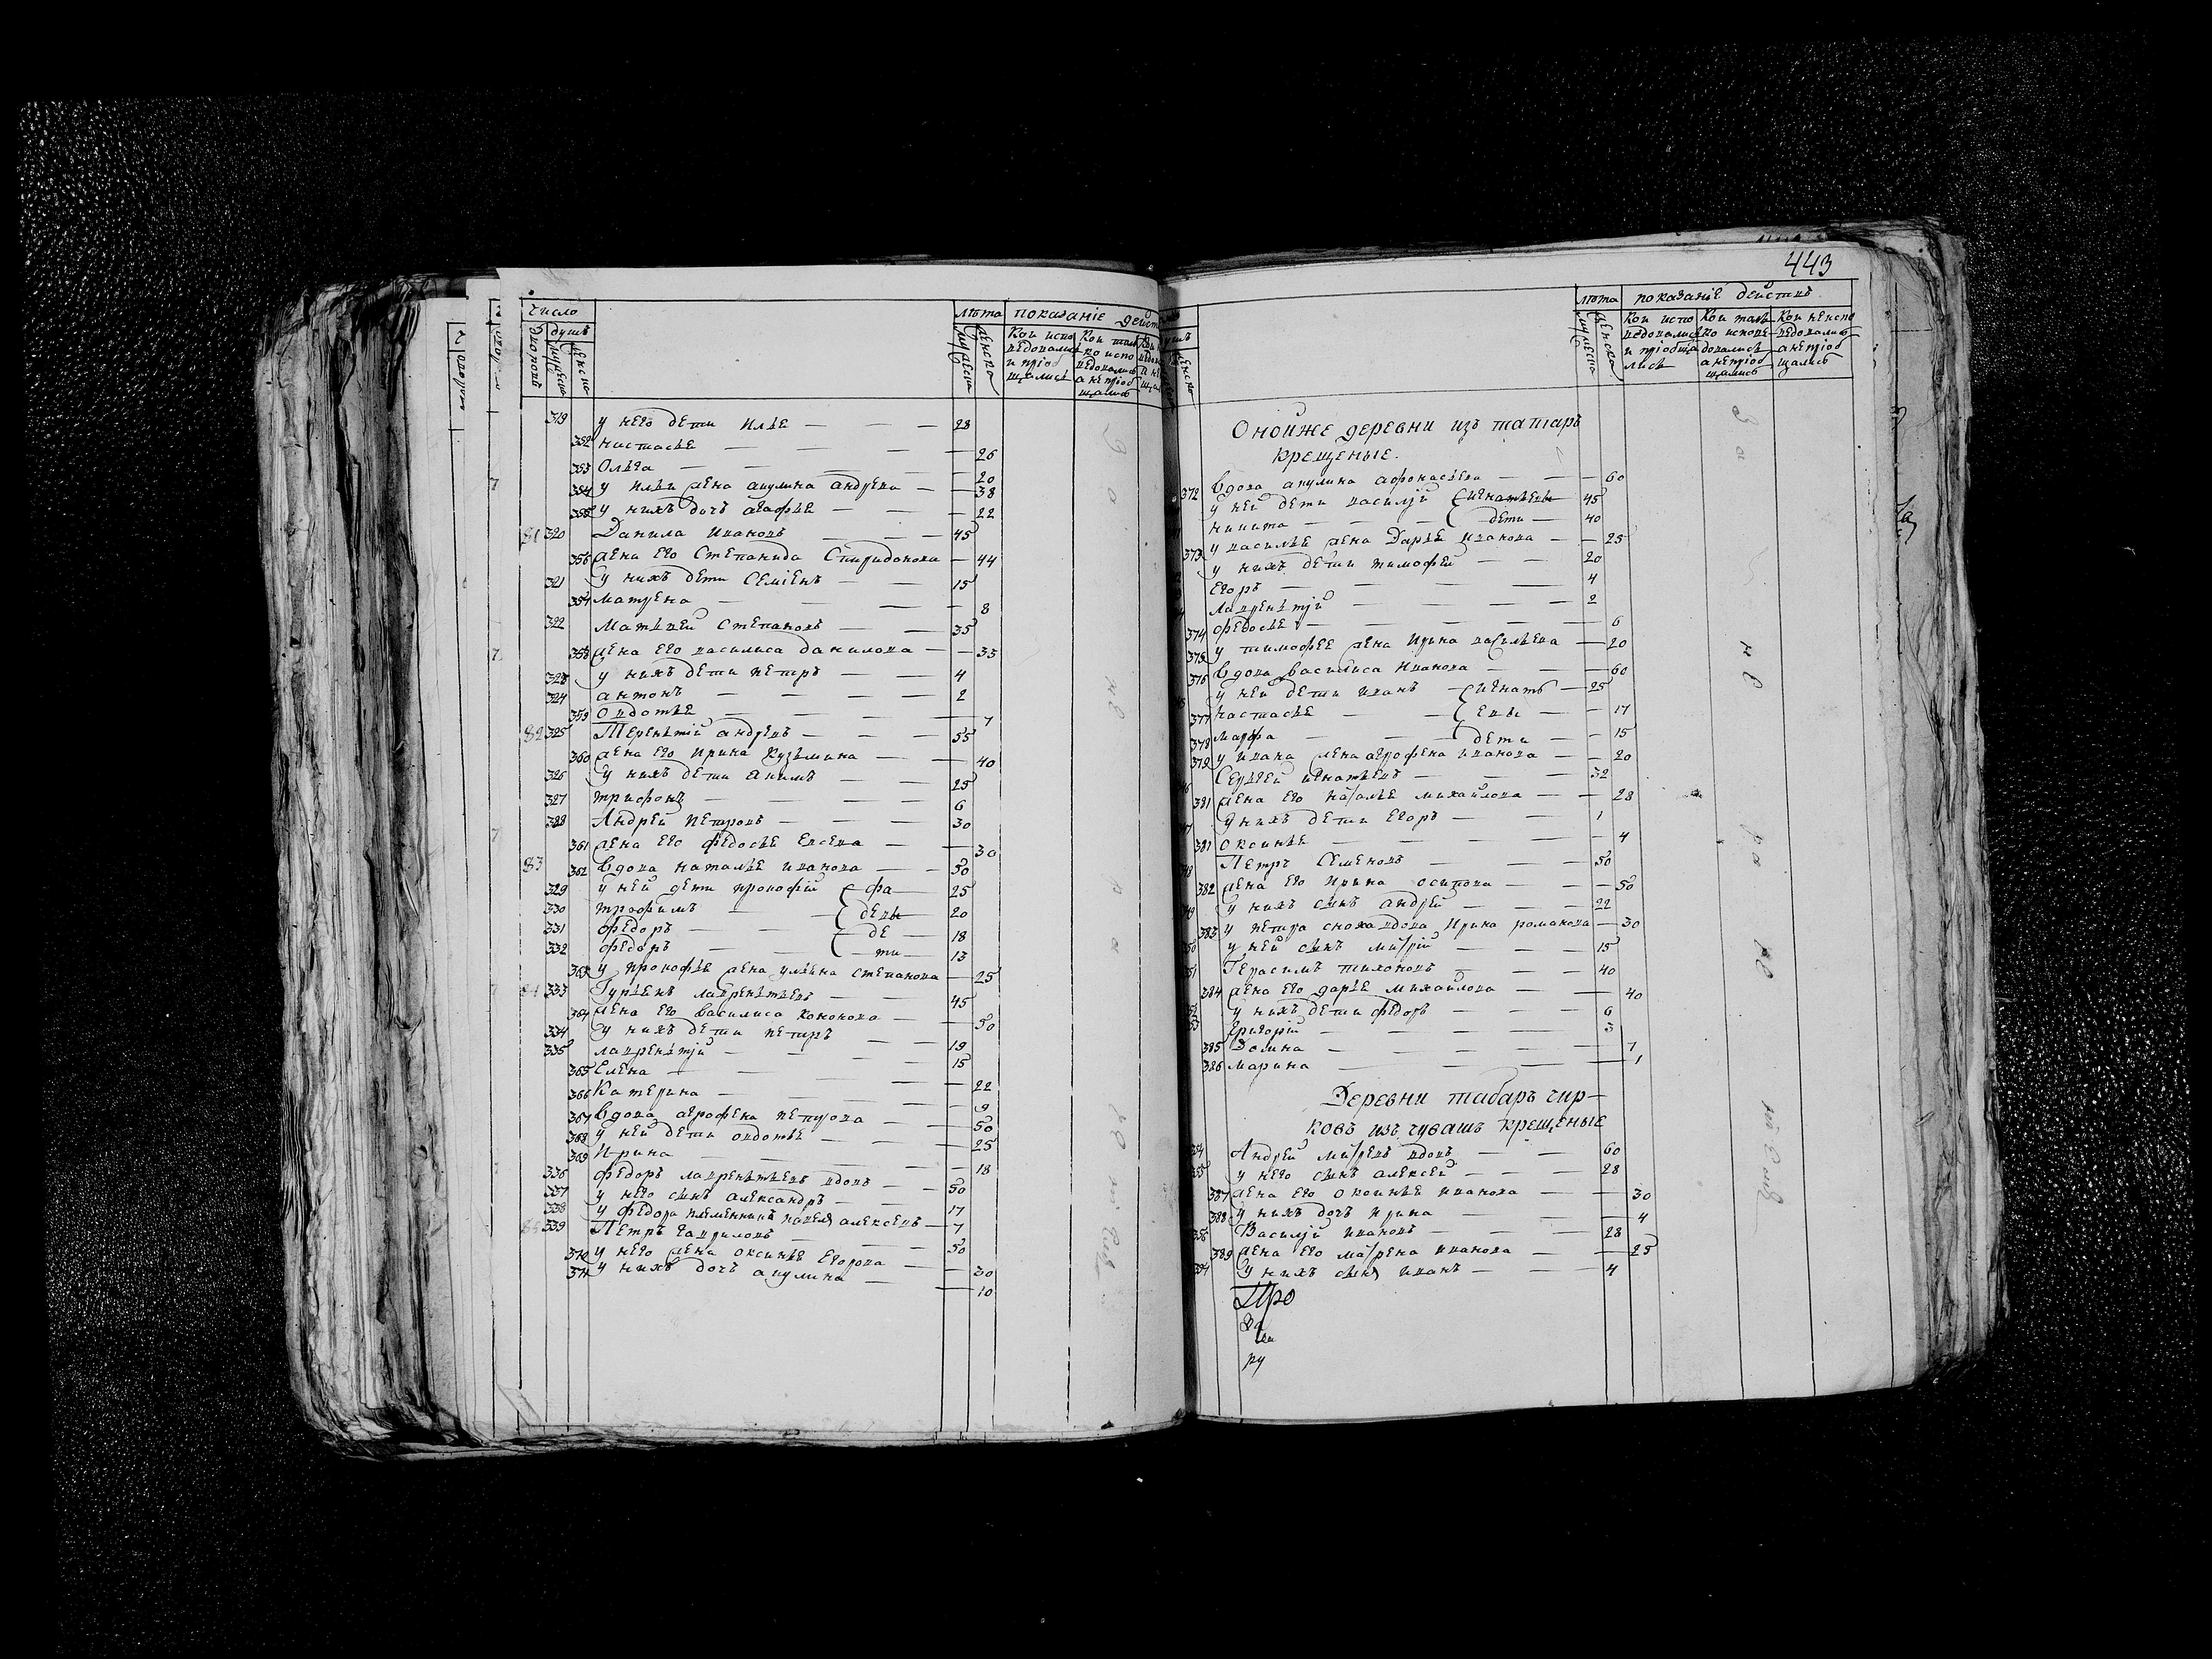 число
душъ
дворовъ
мужеска
женска
лѣта
мужеска
женска
показаніе
Кои испо
ведовались
и пріоб
щались
Кои токмо
испо
ведовались
а непріоб
щались
319 у него дети Илье — 28
352 настасье — 26
353 Олъга — 20
354 у Ильи жена акулина андреева — 38
355 у нихъ дочь агафье — 22
81 320 Данила Ивановъ — 45
356 жена его Степанида Спиридонова — 44
321 у нихъ дети Семіенъ — 15
354 матрена — 8
322 Матвей степановъ — 35
358 жена его василиса данилова — 35
323 у нихъ дети петръ — 4
324 антонъ — 2
359 овдотье — 7
82 325 Терентій андреевъ — 55
360 жена его Ирина Кузьмина — 40
326 у нихъ дети Акимъ — 25
327 трифонъ — 6
328 Андрей Петровъ — 30
361 жена его федосье — 30
83 362 вдова наталье иванова — 50
329 у ней дети прокофій — фа — 25
330 трофимъ — девы — 20
331 федоръ — де — 18
332 федоръ — ти — 13
363 у прокофье жена ульена степанова — 25
84 333 Гурьенъ лаврентьевъ — 45
364 жена его василиса кононова — 50
334 у нихъ дети петръ — 19
335 лаврентій — 15
365 Елена — 22
366 Катерина — 9
367 вдова агрофена петрова — 50
368 у ней дети овдотье — 25
369 Ирина — 18
336 федоръ лаврентьевъ вдовъ — 50
337 у него сынъ александръ — 17
338 у федора племянникъ алексеевъ — 7
339 Петръ гавриловъ — 50
370 у него жена оксинье егорова — 30
371 у нихъ дочь акулина — 10
443
женска
лѣта
мужеска
женска
показаніе действъ
Кои испо
ведовались
и пріобща
лись
Кои токмо
испове
довались
а непріоб
щались
Кои неиспо
ведовались
а непріоб
щались
Онойже деревни изъ татаръ
крещеные.
372 вдова акулина афонасьева — 60
у ней дети василій игнатьевы — 45
никита — дети — 40
373 у василье жена Дарье иванова — 25
у нихъ дети тимофей — 20
Егоръ — 4
лаврентій — 2
374 федосье — 6
375 у тимофее жена Ирина васильева — 20
376 вдова василиса Иванова — 60
у ней дети иванъ игнать — 25
377 настасье — евы — 17
378 марфа — дети — 15
379 у ивана жена агрофена иванова — 20
Сергей игнатьевъ — 32
381 жена его наталье михайлова — 28
у нихъ дети егоръ — 1
381 оксинье — 4
Петръ Семеновъ — 50
382 жена его Ирина осипова — 50
у нихъ сынъ андрей — 22
383 у петра сноха вдова Ирина романова — 30
у ней сынъ митрій — 15
Герасимъ тихоновъ — 40
384 жена его дарье михайлова — 40
у нихъ дети федоръ — 6
Григорій — 3
385 Домна — 7
386 марина — 1
Деревни табаръ чир-
ковъ изъ чувашъ крещеные
Андрей митревъ вдовъ — 60
у него сынъ алексей — 28
387 жена его оксинье иванова — 30
388 у нихъ дочь ирина — 4
Василій ивановъ — 28
389 жена его матрена иванова — 25
у нихъ сынъ иванъ — 4
Про
ру